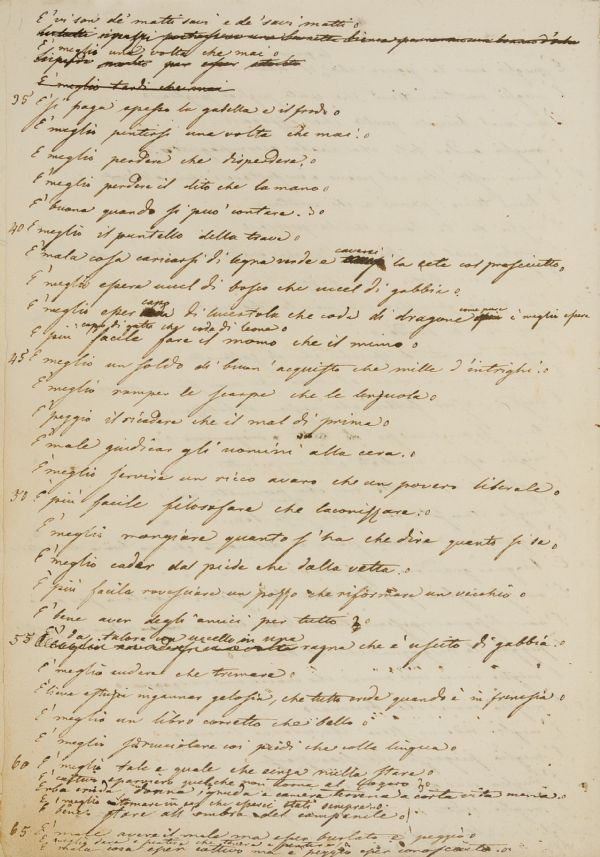 E' vi son de' matti savi e de' savi matti
E' meglio una volta che mai
E' meglio tardi che mai
35 E' si paga spesso la gabella e il frodo
E' meglio pentirsi una volta che mai
E' meglio perdere che disperdere
E' meglio perdere il dito che la mano
E' buona quando si può contare
40 E' meglio il puntello della trave
E' mala cosa caricarsi di legna verde e cavarsi la sete col prosciutto
E' meglio essere uccel di bosco che uccel di gabbia
E' meglio esser capo di lucertola che coda di dragone come pure è meglio essere
capo di gatto che coda di leone
E' più facile fare il momo che il mimo
45 E' meglio un soldo di buon' acquisto che mille d'intrighi
E' meglio romper le scarpe che le lenzuola
E' peggio il ricadere che il mal di prima
E' male giudicar gli uomini alla cera
E' meglio servire un ricco avaro che un povero liberale
50 E' più facile filosofare che laconizzare
E' meglio mangiare quanto s'ha che dire quanto si sa
E' meglio cader dal piede che dalla vetta
E' più facile rovesciare un pozzo che riformare un vecchio
E' bene aver degli amici per tutto
55 E' dà talora un uccello in una ragna che è uscito di gabbia
E' meglio sudere che tremare
E' lieve astuzia ingannar gelosia, che tutto crede quando è in frenesia
E' meglio un libro corretto che bello
E' meglio sdrucciolare coi piedi che colla lingua
60 E' meglio tale e quale che senza nulla stare
E' cattivo sparmiero quel che non torna al logoro
E' meglio tornare in che esserci stati sempre
E' bene stare all' ombra del campanile
65 E' male avere il male ma esser burlato è peggio
E' meglio dare e pentire che tenere e pentire
E' mala cosa esser cattivo ma è peggio esser conosciuto